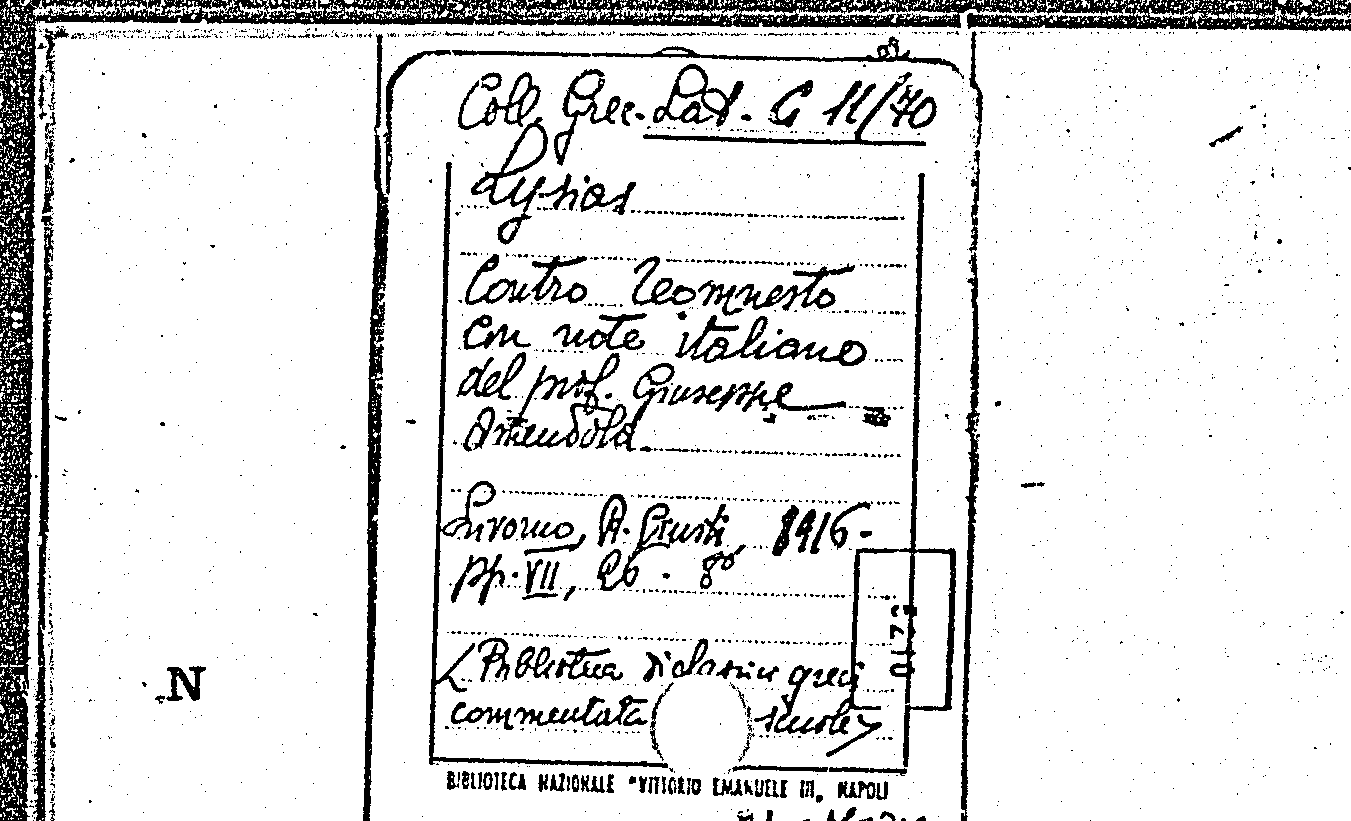 Coll. Grec. Lat. G 11/70
Lysias
Contro Teomnesto
con note italiano
del prof. Giuseppe
Amendola
Livorno, R. Giusti, 1916-
pp. VII, 26. 8°
<Biblioteca di classici greci
commentata scuole>
BIBLIOTECA NAZIONALE "VITTORIO EMANUELE III" NAPOLI
N